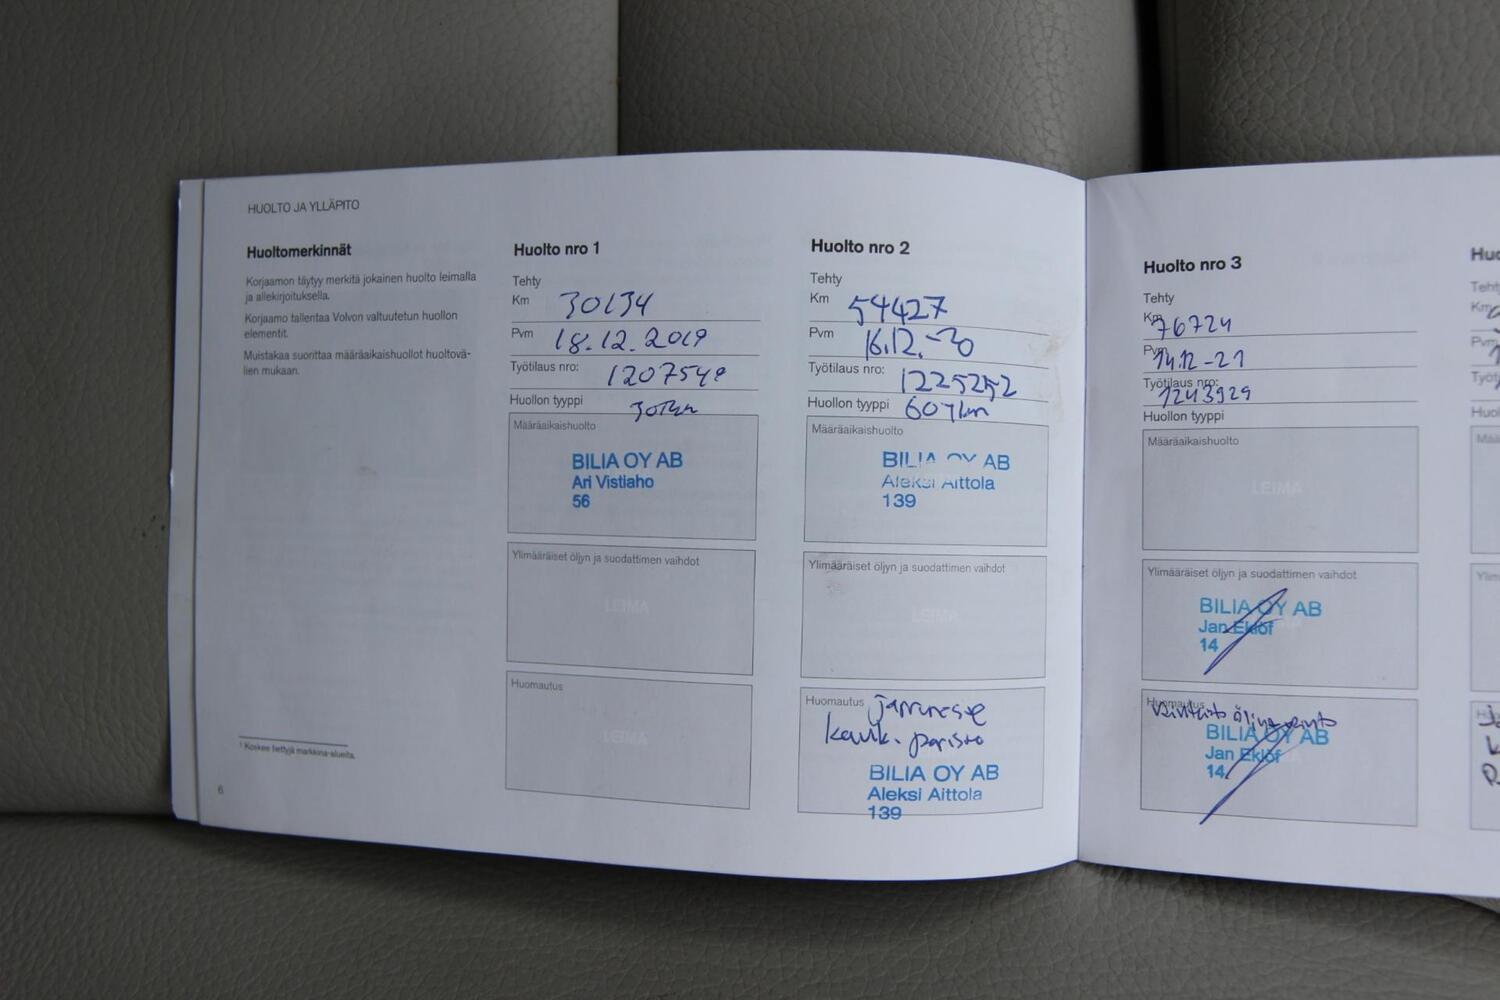 HUOLTO JA YLLÄPITO
Huoltomerkinnät
Korjaamon täytyy merkitä jokainen huolto leimalla
ja allekirjoituksella.
Korjaamo tallentaa Volvon valtuutetun huollon
elementit.
Muistakaa suorittaa määräaikaishuollot huoltovä-
lien mukaan.
¹ Koskee tiettyjä markkina-alueita.
6
Huolto nro 1
Tehty
Km 30134
Pvm 18.12.2019
Työtilaus nro: 1207549
Huollon tyyppi
Määräaikaishuolto
BILIA OY AB
Ari Vistiaho
56
Ylimääräiset öljyn ja suodattimen vaihdot
LEIMA
Huomautus
LEIMA
Huolto nro 2
Tehty
Km 54427
Pvm 16.12.-20
Työtilaus nro: 1225252
Huollon tyyppi 60 tkm
Määräaikaishuolto
BILIA OY AB
Aleksi Aittola
139
Ylimääräiset öljyn ja suodattimen vaihdot
LEIMA
Huomautus jarruneste
kauk. paristo
BILIA OY AB
Aleksi Aittola
139
Huolto nro 3
Tehty
Km 76724
Pvm 14.12-21
Työtilaus nro: 1243929
Huollon tyyppi
Määräaikaishuolto
LEIMA
Ylimääräiset öljyn ja suodattimen vaihdot
BILIA OY AB
Jan Eklöf
14
Huomautus
BILIA OY AB
Jan Eklöf
14